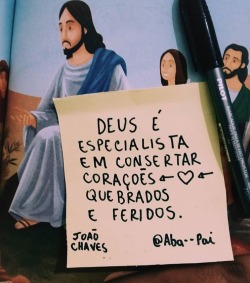 DEUS É
ESPECIALISTA
EM CONSERTAR
CORAÇÕES
QUEBRADOS
E FERIDOS.
JOÃO
CHAVES
@Aba--Pai